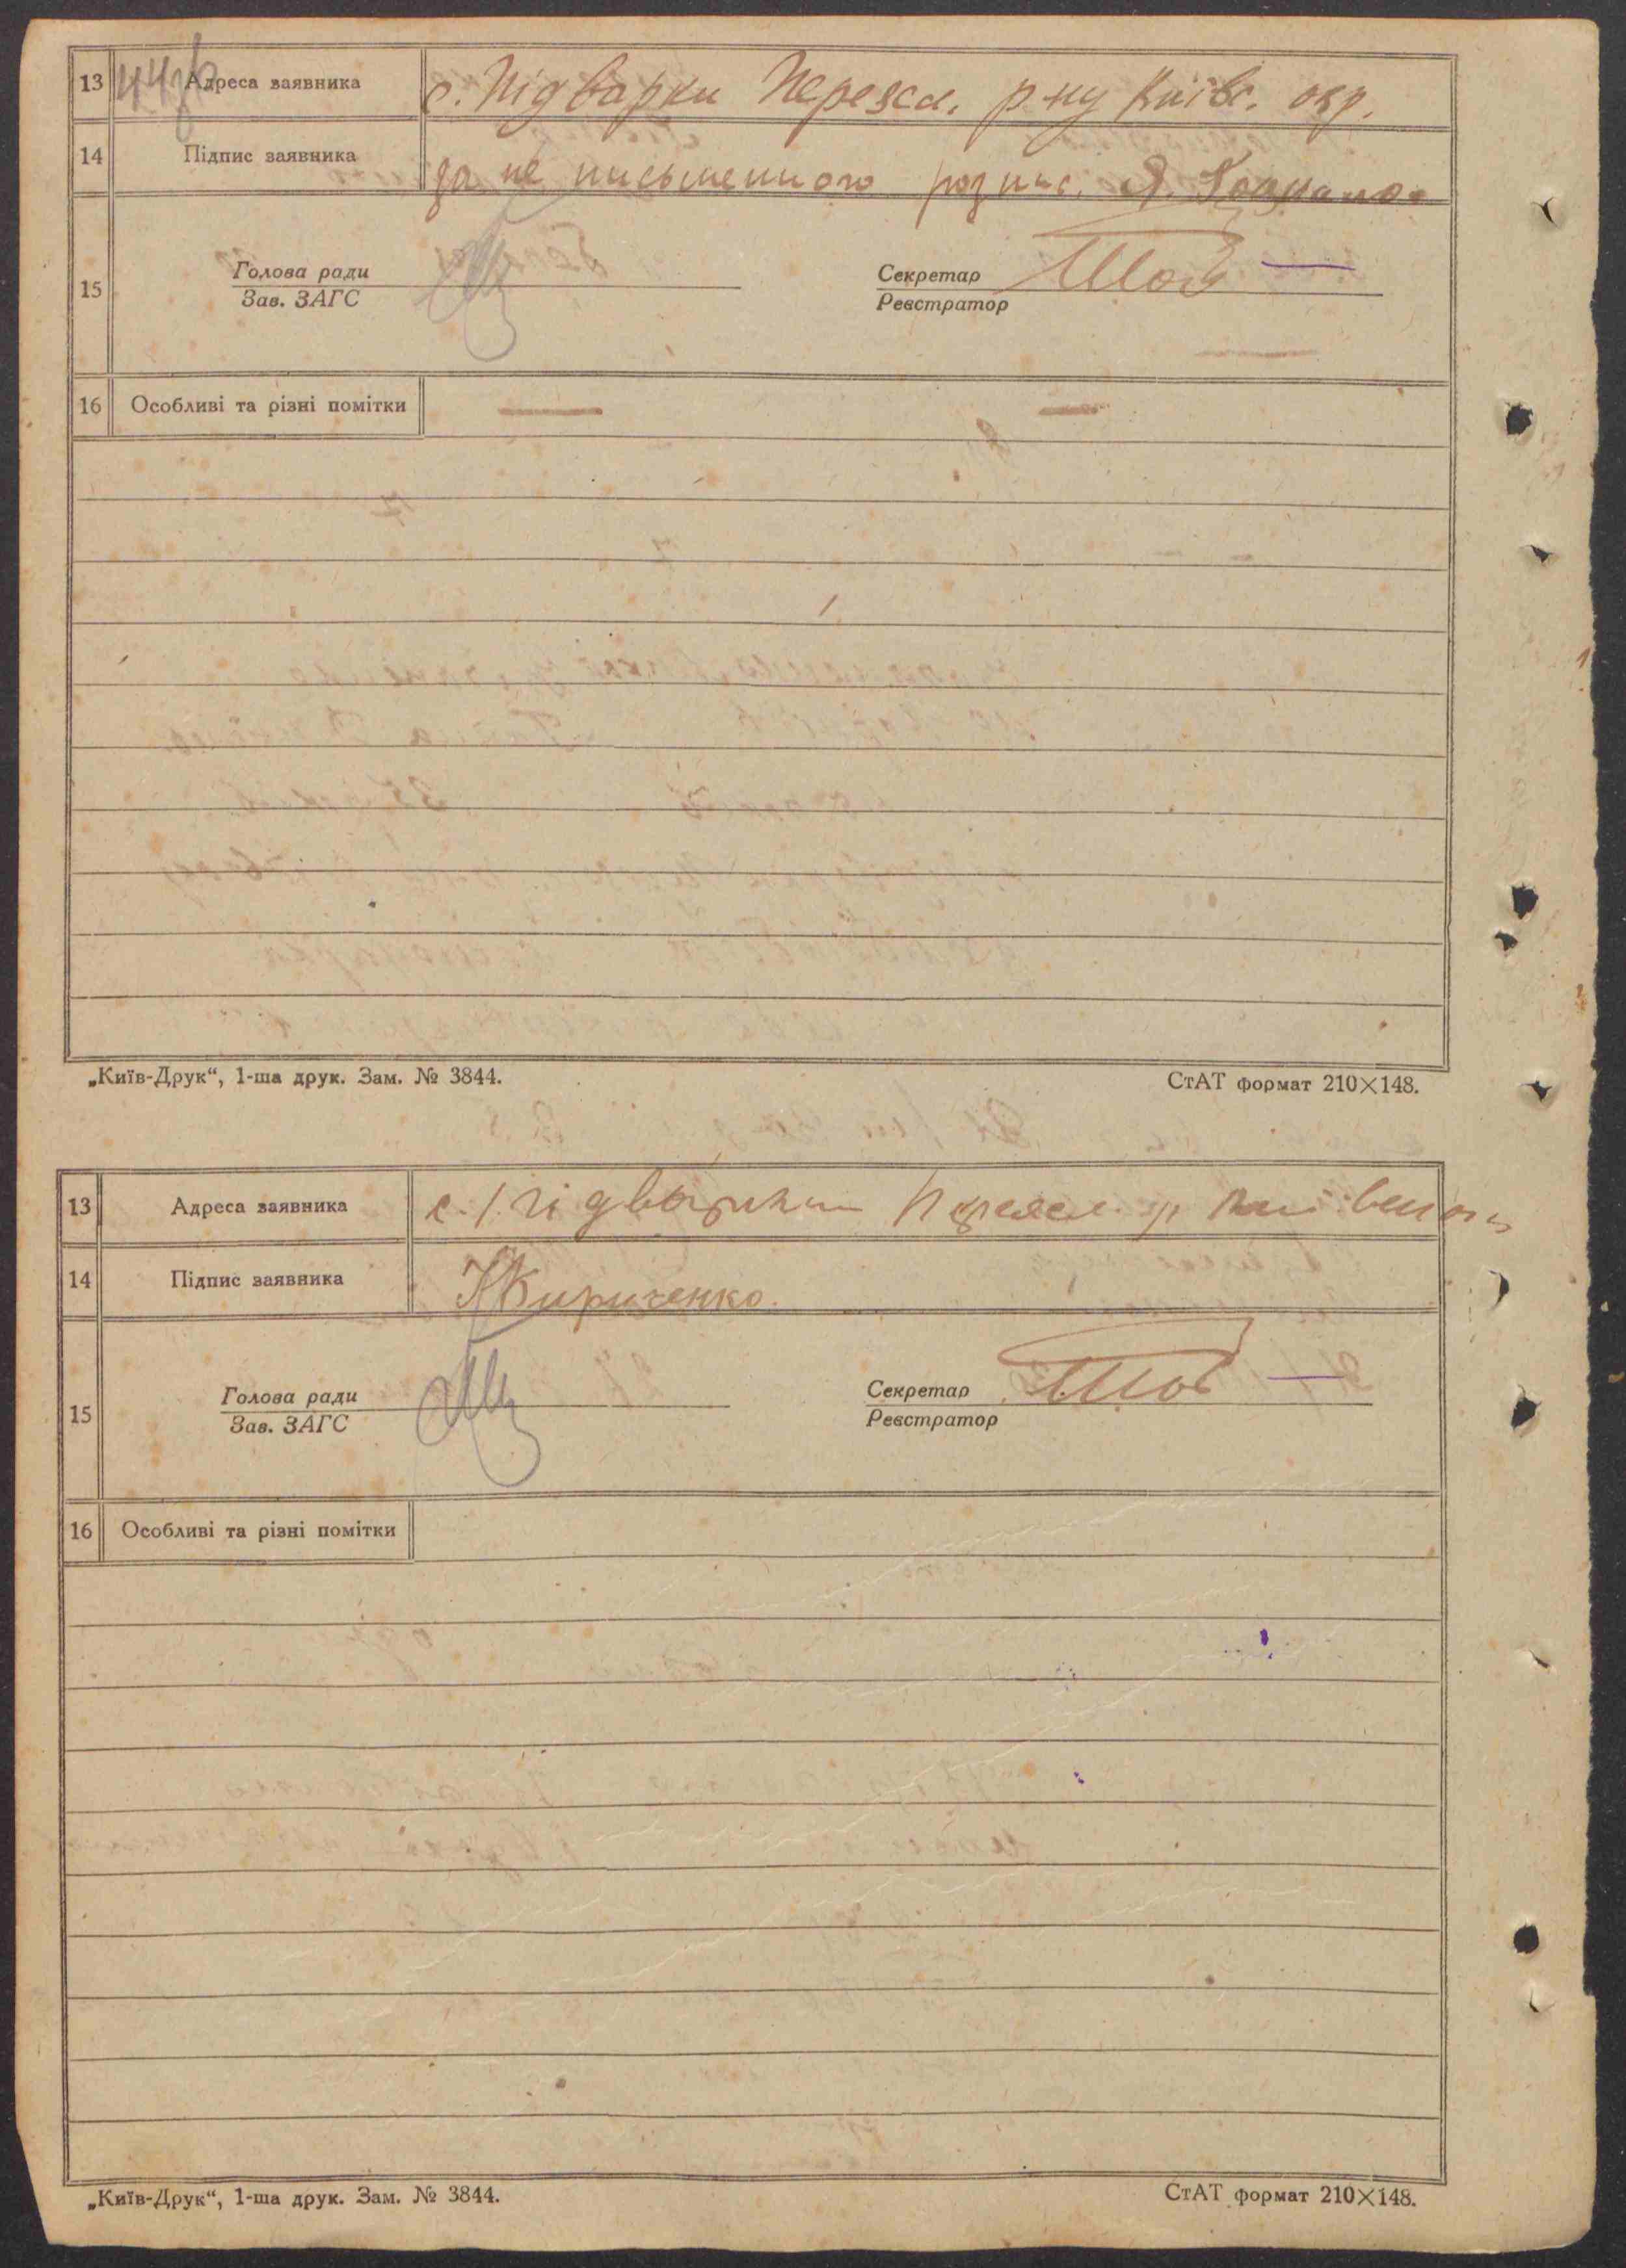 13 44зв Адреса заявника с. Підварки Переясл. р-ну Київс. окр.
14 Підпис заявника за не письменного розпис. Я.
15 Голова ради Секретар Шов
Зав. ЗАГС Реєстратор
16 Особливі та різні помітки — —
„Київ-Друк“, 1-ша друк. Зам. № 3844. СтАТ формат 210×148.
13 Адреса заявника с. Підварки Переясл. р
14 Підпис заявника Кириченко.
15 Голова ради Секретар Шов
Зав. ЗАГС Реєстратор
16 Особливі та різні помітки
„Київ-Друк“, 1-ша друк. Зам. № 3844. СтАТ формат 210×148.